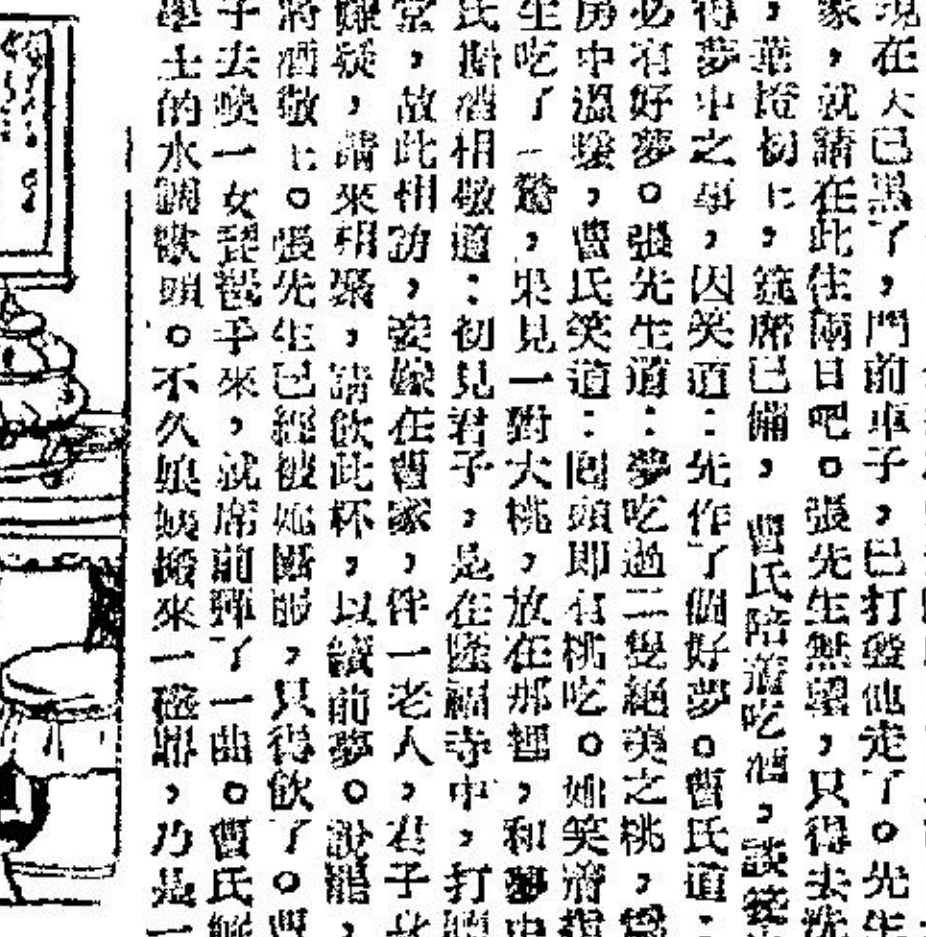 現在天已黑了，門前車子，已打發他走了。先生
家，就請在此住兩日吧。張先生無望，只得去洗
，華燈初上，筵席已備，曹氏陪着吃酒，談笑
得夢中之事，因笑道：先作了個好夢。曹氏道：
必有好夢。張先生道：夢吃過二隻絕美之桃，
房中溫暖，曹氏笑道：回頭即有桃吃。她笑着
生吃了一驚，果見一對大桃，放在那裡，和夢中
氏斟酒相敬道：初見君子，是在隆福寺中，打
堂，故此相訪，妾嫁在曹家，伴一老人，君子
嫌疑，請來相聚，請飲此杯，以續前夢。說罷，
將酒敬上。張先生已經被她
，只得飲了。曹
子去喚一女琵琶手來，就席前彈了一曲。曹氏解
學士的水調歌頭。不久娘姨搬來一
，乃是一